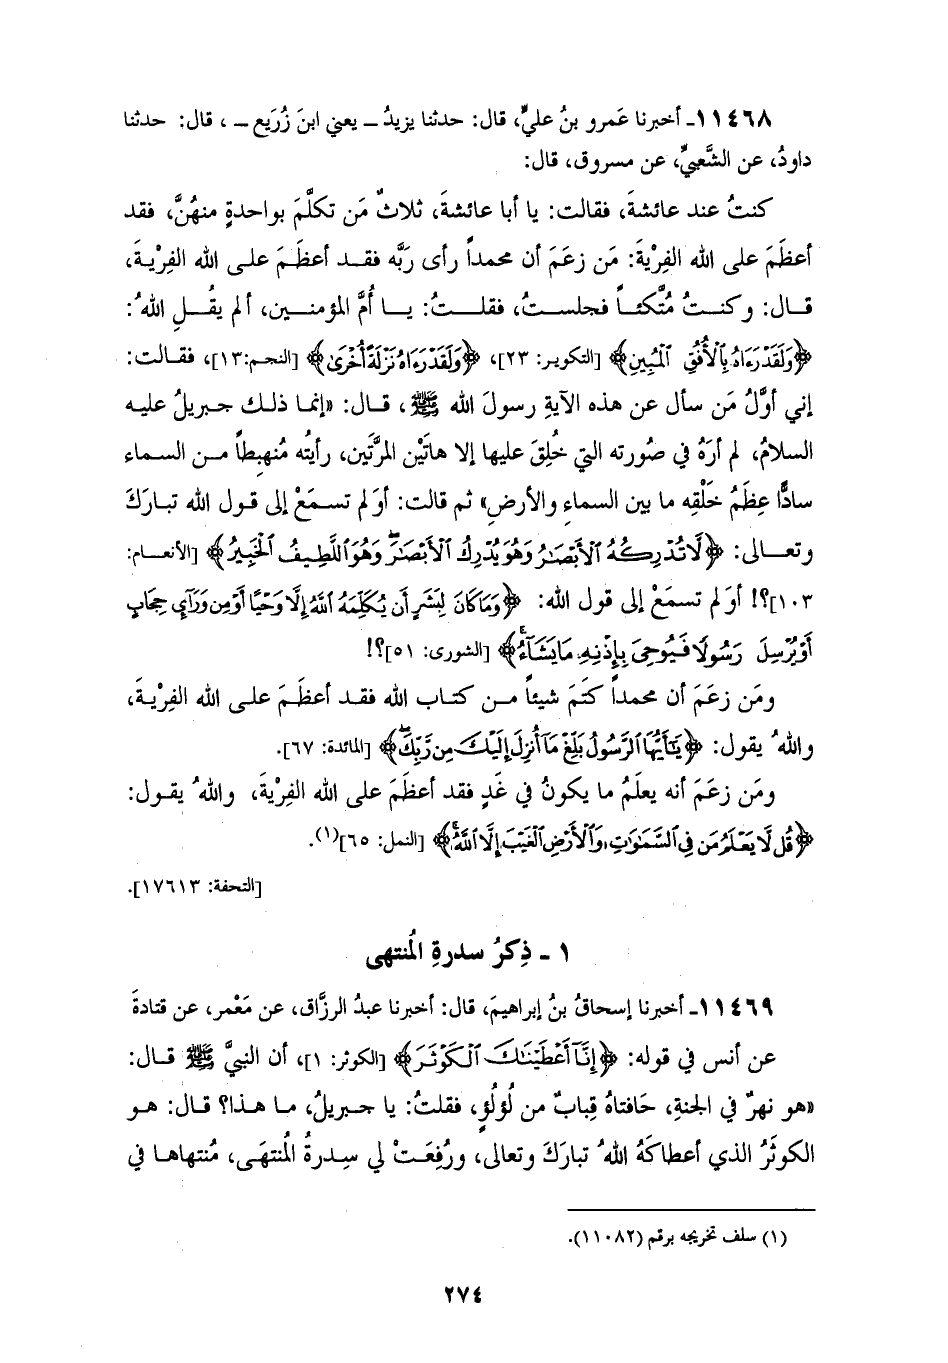 ١١٤٦٨ـ أخبرنا عَمرو بنُ عليٍّ، قال: حدثنا يزيدُ ـ يعني ابنَ زُرَيع ـ ، قال: حدثنا
داودُ، عن الشَّعبيِّ، عن مسروق، قال:
كنتُ عند عائشةَ، فقالت: يا أبا عائشةَ، ثلاثٌ مَن تكلَّمَ بواحدةٍ منهُنَّ، فقد
أعظَمَ على الله الفِرْيةَ: مَن زعَمَ أن محمداً رأى ربَّه فقد أعظَمَ على الله الفِرْيةَ،
قال: وكنتُ مُتَّكئاً فجلستُ، فقلتُ: يا أُمَّ المؤمنين، ألم يقُلِ اللهُ:
﴿وَلَقَدْ رَءَاهُ بِٱلْأُفُقِ ٱلْمُبِينِ﴾ [التكوير: ٢٣]، ﴿وَلَقَدْ رَءَاهُ نَزْلَةً أُخْرَىٰ﴾ [النجم:١٣]، فقالت:
إني أوَّلُ مَن سأل عن هذه الآيةِ رسولَ الله ﷺ، قال: «إنما ذلك جبريلُ عليه
السلامُ، لم أرَهُ في صُورته التي خُلِقَ عليها إلا هاتَيْن المرَّتَين، رأيتُه مُنهبِطاً من السماء
سادًّا عِظَمُ خَلْقِه ما بين السماءِ والأرضِ» ثم قالت: أوَلم تسمَعْ إلى قول الله تبارَكَ
وتعالى: ﴿لَّا تُدْرِكُهُ ٱلْأَبْصَٰرُ وَهُوَ يُدْرِكُ ٱلْأَبْصَٰرَۖ وَهُوَ ٱللَّطِيفُ ٱلْخَبِيرُ﴾ [الأنعام:
١٠٣]؟! أوَلم تسمَعْ إلى قول الله: ﴿وَمَا كَانَ لِبَشَرٍ أَن يُكَلِّمَهُ ٱللَّهُ إِلَّا وَحْيًا أَوْ مِن وَرَآيِٕ حِجَابٍ
أَوْ يُرْسِلَ رَسُولًا فَيُوحِىَ بِإِذْنِهِۦ مَا يَشَآءُۚ﴾ [الشورى: ٥١]؟!
ومَن زعَمَ أن محمداً كَتَمَ شيئاً من كتاب الله فقد أعظَمَ على الله الفِرْيةَ،
واللهُ يقول: ﴿يَٰٓأَيُّهَا ٱلرَّسُولُ بَلِّغْ مَآ أُنزِلَ إِلَيْكَ مِن رَّبِّكَۖ﴾ [المائدة: ٦٧].
ومَن زعَمَ أنه يعلَمُ ما يكونُ في غَدٍ فقد أعظَمَ على الله الفِرْيةَ، واللهُ يقول:
﴿قُل لَّا يَعْلَمُ مَن فِى ٱلسَّمَٰوَٰتِ وَٱلْأَرْضِ ٱلْغَيْبَ إِلَّا ٱللَّهُۚ﴾ [النمل: ٦٥](١).
[التحفة: ١٧٦١٣].
١ ـ ذِكرُ سدرةِ المُنتهى
١١٤٦٩ـ أخبرنا إسحاقُ بنُ إبراهيمَ، قال: أخبرنا عبدُ الرزَّاق، عن مَعْمر، عن قتادةَ
عن أنس في قوله: ﴿إِنَّآ أَعْطَيْنَٰكَ ٱلْكَوْثَرَ﴾ [الكوثر: ١]، أن النبيَّ ﷺ قال:
«هو نهرٌ في الجنةِ، حَافتاهُ قِبابٌ من لُؤلُؤٍ، فقلتُ: يا جبريلُ، ما هذا؟ قال: هو
الكوثَرُ الذي أعطاكَهُ اللهُ تبارَكَ وتعالى، ورُفِعَتْ لي سِدرةُ المُنتهَى، مُنتهاها في
(١) سلف تخريجه برقم (١١٠٨٢).
٢٧٤